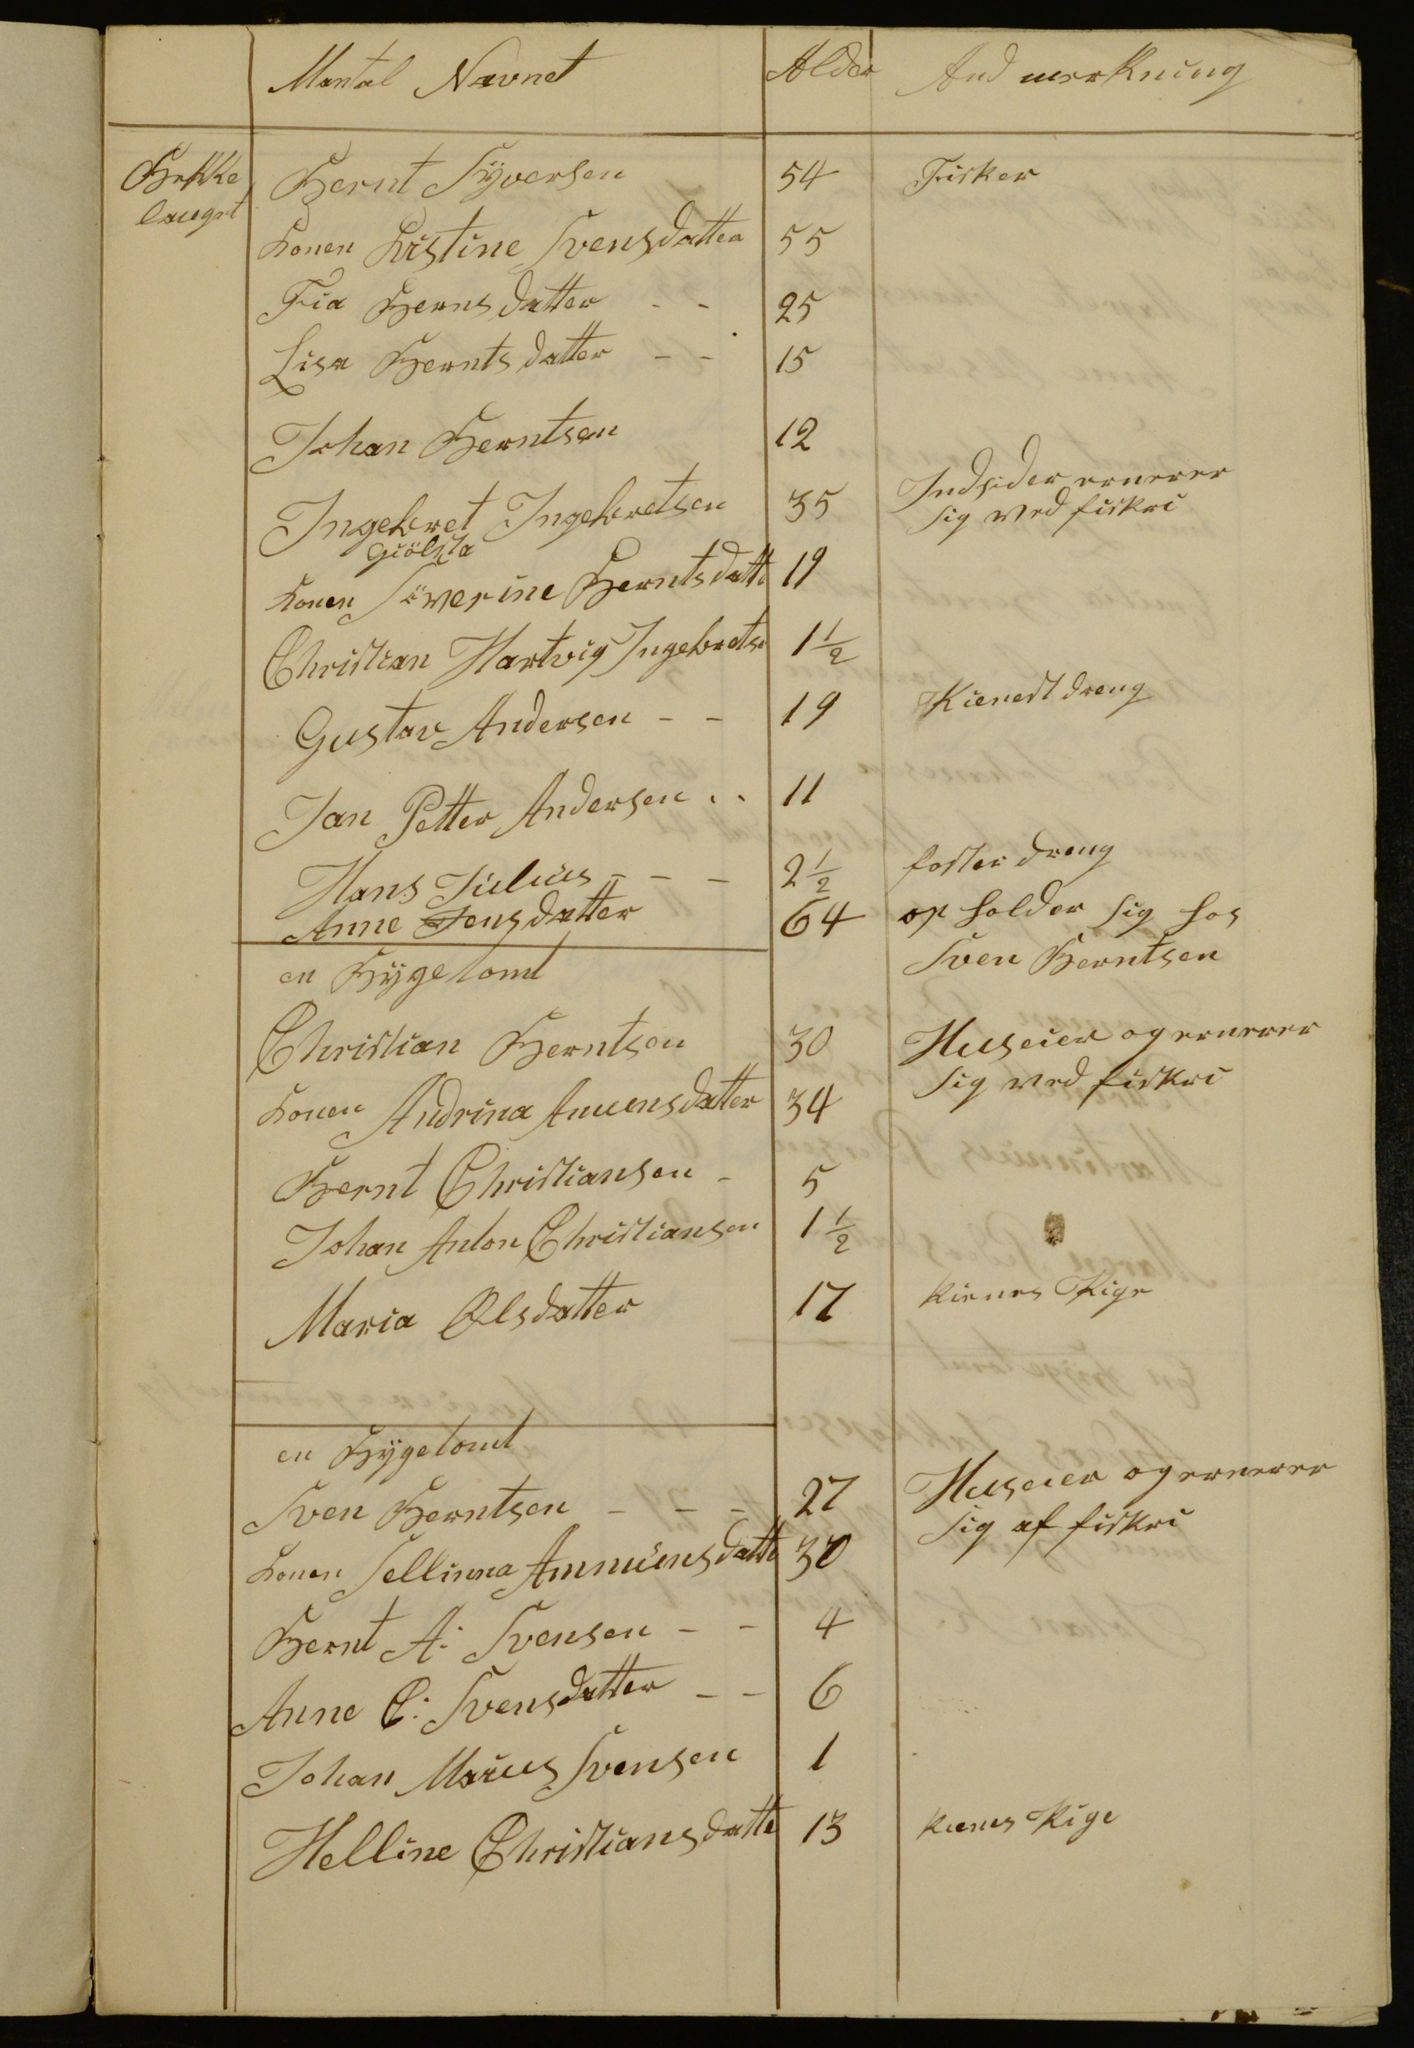 Mantal Navnet Alder And merkning
Bekke Bernt Syversen 54 Fisker
lauget
Konen Kistine Svensdatter 55
Fia Berns datter - - 25
Lisa Bernts datter - - 15
Johan Berntsen 12
Ingebret Ingebretsen 35 Indsider ernerer
sig ved fiskri
Giölsta
Konen Söverine Berntsdatte 19
Christian Hartvig Ingebretse 1 1/2
Gustav Andersen - - 19 Kienest dreng
Jan Petter Andersen . . 11
Hans Julius - - - 2 1/2 foster dreng
Anne Jensdatter 64 op holder sig hos
Sven Berntsen
en Bÿgetomt
Christian Berntsen 30 Huseier og ernerer
sig ved fiskri
Konen Andrina Amunsdatter 34
Bernt Christiansen - 5
Johan Anton Christiansen 1 1/2
Maria Olsdatter 17 kienes Pige
en Bÿgetomt
Sven Berntsen - - - 27 Huseier og ernerer
sig af fiskri
Konen Sellinna Ammunsdatte 30
Bernt A: Svensen - - 4
Anne C: Svensdatter - - 6
Johan Marius Svensen 1
Helline Christiansdatte 13 kienes Pige